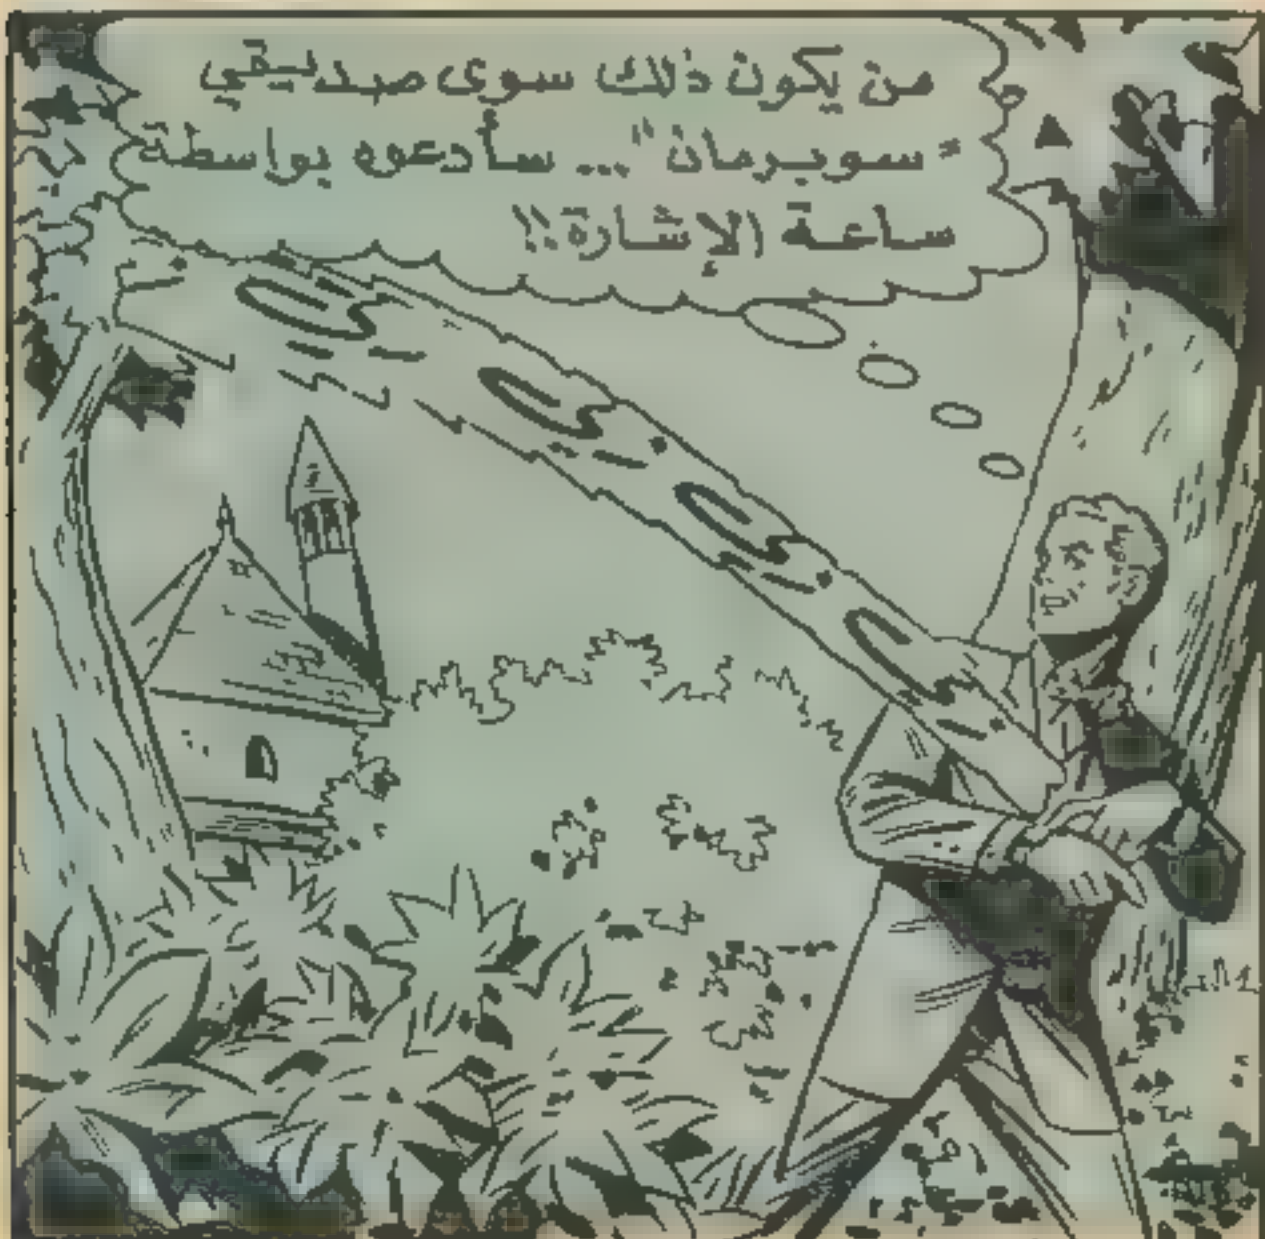 من يكون ذلك سوى صديقي
"سوبرمان" ... سأدعوه بواسطة
ساعة الإشارة!!